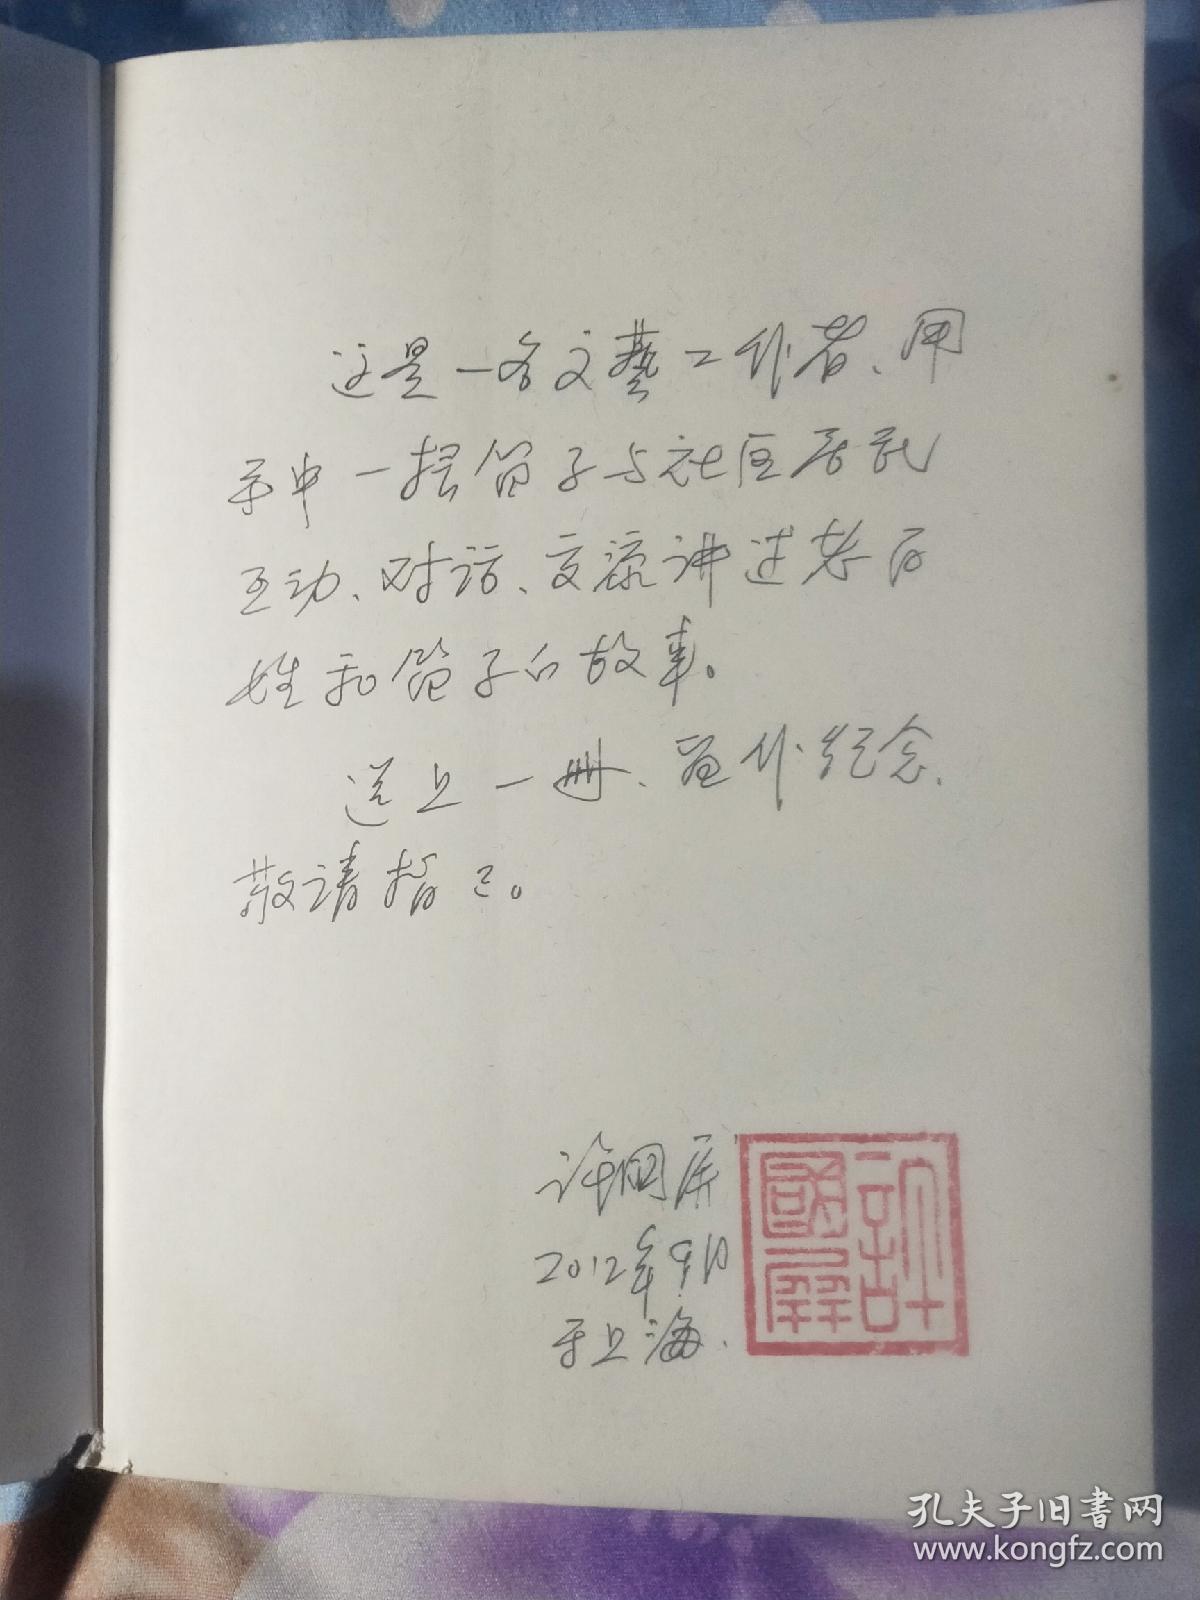 这是一名文藝工作者、用
手中一根笛子与社区居民
互动、对话、交流讲述老百
姓和笛子的故事。
送上一册、留作纪念、
敬请指正。
许国屏
2012年9月
于上海.
許國屏
孔夫子旧書网
www.kongfz.com